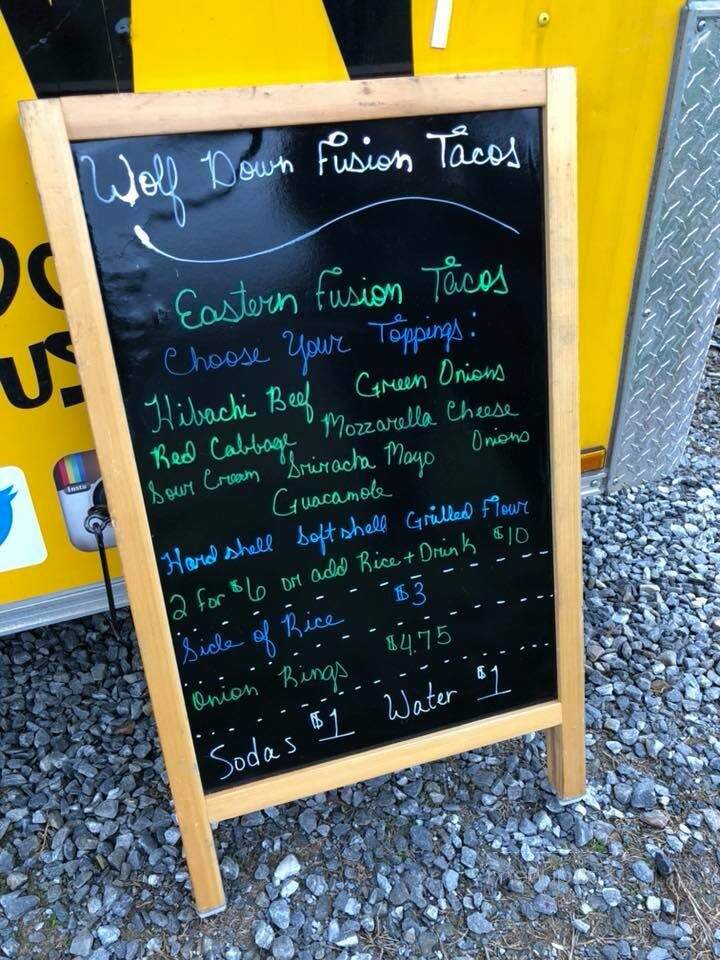 Wolf Down Fusion Tacos
Eastern Fusion Tacos
Choose Your Toppings:
Hibachi Beef Green Onions
Red Cabbage Mozzarella Cheese
Sour Cream Sriracha Mayo Onions
Guacamole
Hard shell Soft shell Grilled Flour
2 for $6 or add Rice + Drink $10
Side of Rice $3
Onion Rings $4.75
Sodas $1 Water $1
US
Insta